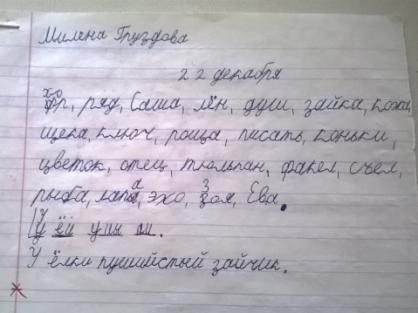 Милена Груздова
22 декабря
хор, ряд, Саша, лён, душ, зайка, кожа,
щека, ключ, роща, писать, коньки,
цветок, отец, тюльпан, факел, съел,
рыба, лапа, эхо, Зоя, Ева.
У ёл
У ёлки пушистый зайчик.